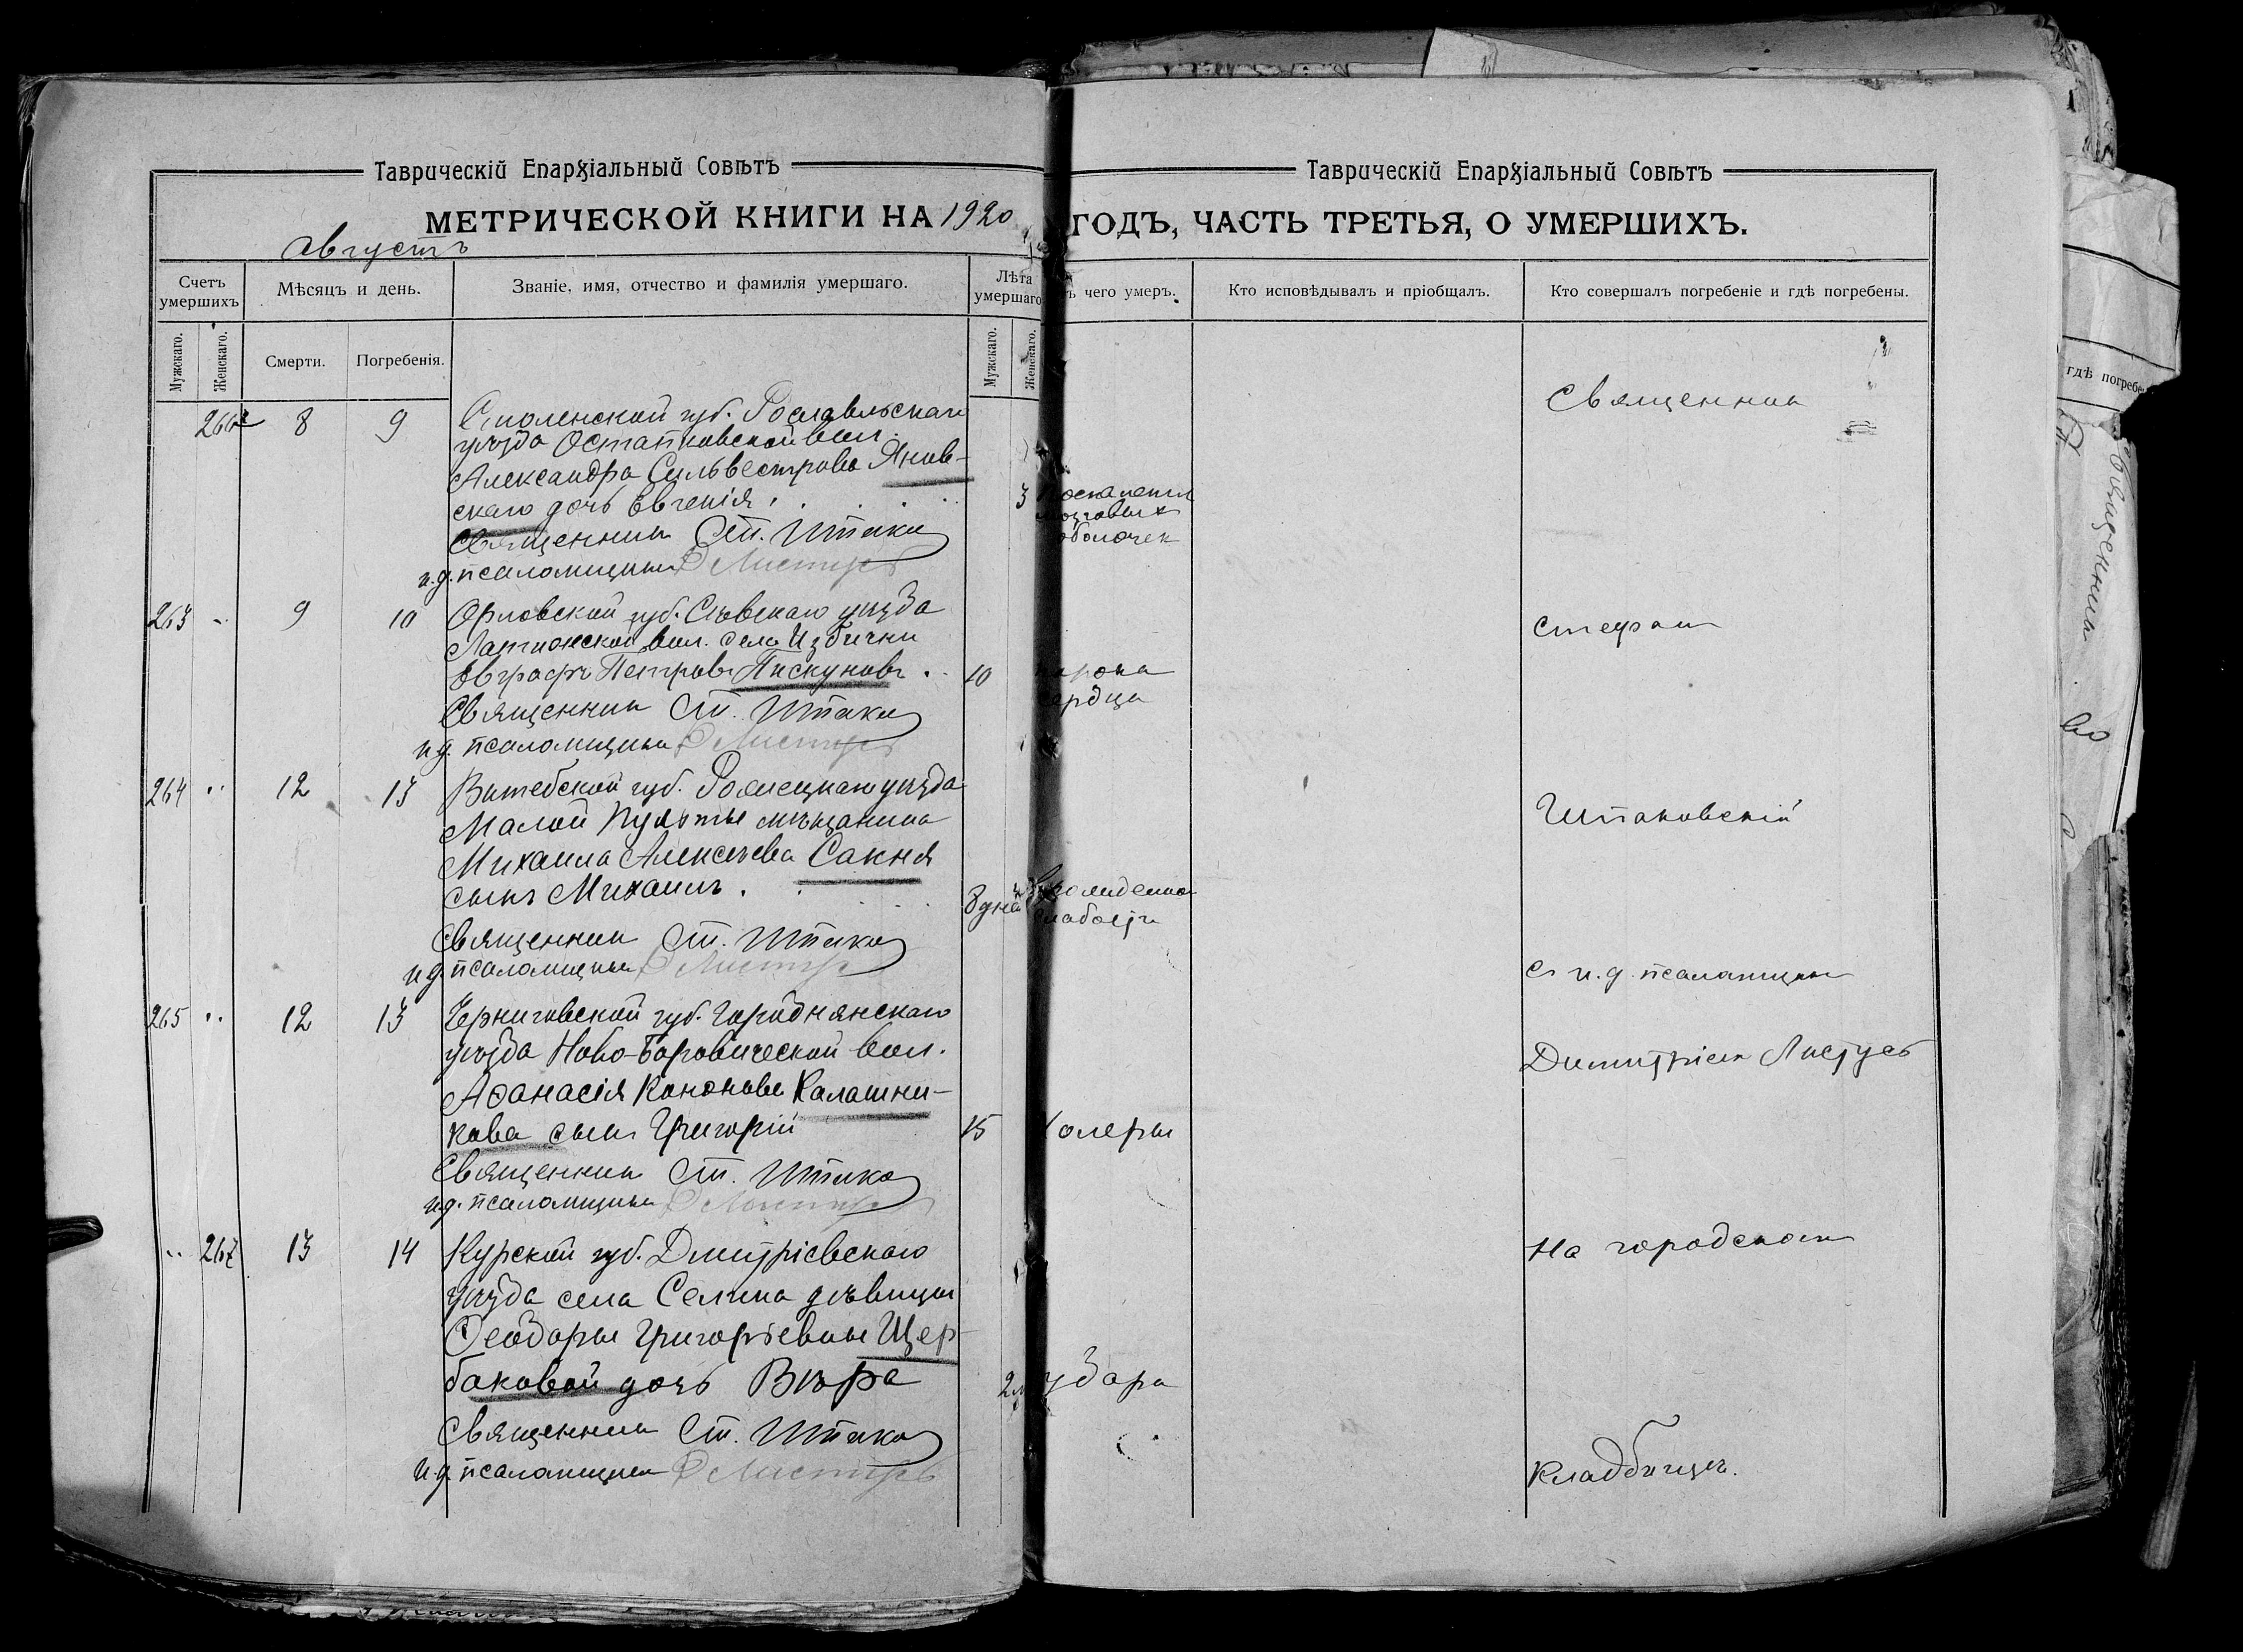 Таврическій Епархіальный Совѣтъ
МЕТРИЧЕСКОЙ КНИГИ НА 1920
Августъ
Счетъ умершихъ
Мѣсяцъ и день.
Званіе, имя, отчество и фамилія умершаго.
Лѣта умершаго
Мужскаго.
Женскаго.
Смерти.
Погребенія.
Мужскаго.
Женскаго.
266 8 9 Смоленской губ. Рославльскаго
уѣзда Остапковской вол.
Александра Сильвестрова Янов-
скаго дочь Евгенія 3
Священник Ст. Штако
и.д. псаломщика Д Листусъ
263 " 9 10 Орловской губ. Сѣвскаго уѣзда
вол. села Избички
Евграфъ Петровъ Пискуновъ 10
Священник Ст. Штако
и.д. псаломщика Д Листусъ
264 " 12 13 Витебской губ. уѣзда
Малой мѣщанина
Михаила Алексѣева Сакня
сынъ Михаилъ 8 дней
Священник Ст. Штако
и.д. псаломщика Д Листусъ
265 " 12 13 Черниговской губ. Городнянскаго
уѣзда Ново-Боровической вол.
Афанасія Кононова Калашни-
кова сынъ Григорій 15
Священник Ст. Штако
и.д. псаломщика Д Листусъ
" 267 13 14 Курской губ. Дмитріевскаго
уѣзда села Селина дѣвицы
Феодоры Григорьевны Щер-
баковой дочь Вѣра 2
Священник Ст. Штако
и.д. псаломщика Д Листусъ
Таврическій Епархіальный Совѣтъ
ГОДЪ, ЧАСТЬ ТРЕТЬЯ, О УМЕРШИХЪ.
ъ чего умеръ.
Кто исповѣдывалъ и пріобщалъ.
Кто совершалъ погребеніе и гдѣ погребены.
Священник
воспаленія
мозговых
оболочек
Стефан
порока
сердца
Штаковскій
врожденной
слабости
с и.д. псаломщик
Димитріем Листусъ
холеры
На городском
удара
кладбищѣ.
гдѣ погребе
Священник